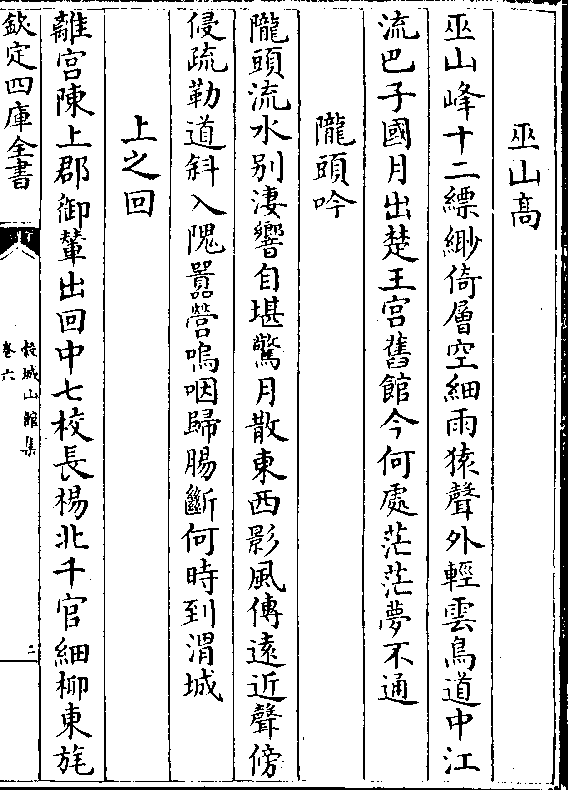 巫山髙
巫山峰十二縹緲倚層空細雨猿聲外輕雲鳥道中江
流巴子國月出楚王宫舊館今何處茫茫夢不通
隴頭吟
隴頭流水别淒響自堪驚月散東西影風傳遠近聲傍
侵疏勒道斜入隗囂營嗚咽歸腸斷何時到渭城
上之回
離宫陳上郡御輦出回中七校長楊北千官細柳東旄
欽定四庫全書
榖城山館集
卷六
二